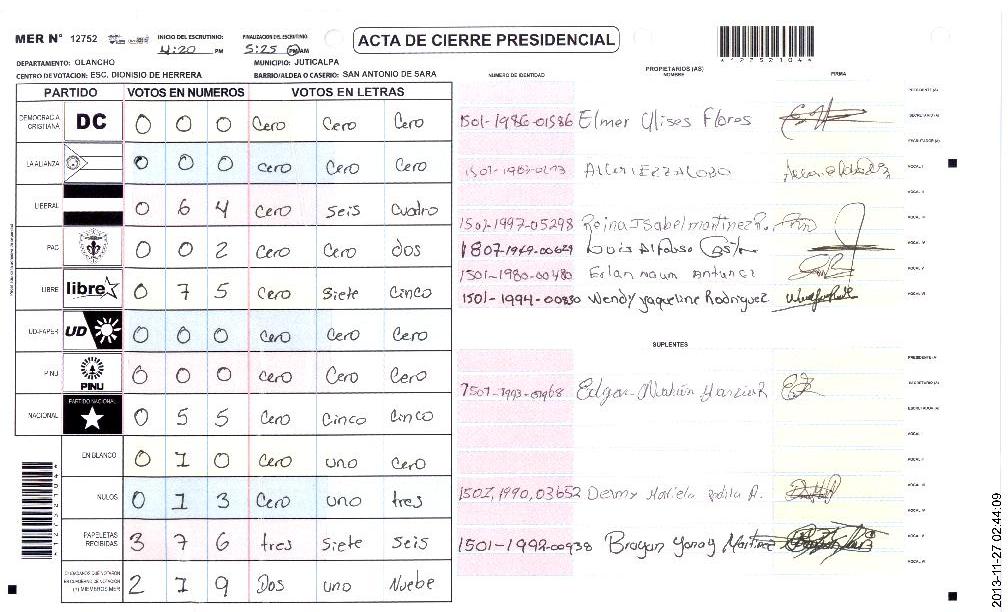 MER N° 12752 INICIO DEL ESCRUTINIO: 4:20 PM FINALIZACION DEL ESCRUTINIO: 5:25 PM AM
ACTA DE CIERRE PRESIDENCIAL
4127521044
DEPARTAMENTO: OLANCHO MUNICIPIO: JUTICALPA
CENTRO DE VOTACION: ESC. DIONISIO DE HERRERA BARRIO/ALDEA O CASERIO: SAN ANTONIO DE SARA
NUMERO DE IDENTIDAD PROPIETARIOS (AS) NOMBRE FIRMA
PARTIDO VOTOS EN NUMEROS VOTOS EN LETRAS
DEMOCRACIA CRISTIANA DC 0 0 0 Cero Cero Cero
LA ALIANZA 0 0 0 Cero Cero Cero
LIBERAL 0 6 4 Cero Seis Cuatro
PAC 0 0 2 Cero Cero dos
LIBRE libre 0 7 5 Cero Siete Cinco
UD-FAPER UD 0 0 0 Cero Cero Cero
PINU PINU 0 0 0 Cero Cero Cero
NACIONAL PARTIDO NACIONAL 0 5 5 Cero Cinco Cinco
EN BLANCO 0 1 0 Cero uno Cero
NULOS 0 1 3 Cero uno tres
PAPELETAS RECIBIDAS 3 7 6 tres Siete Seis
CIUDADANOS QUE VOTARON EN CUADERNO DE VOTACION (+) MIEMBROS MER 2 1 9 Dos uno Nuebe
PRESIDENTE (A)
1501-1986-01586 Elmer Ulises Flores SECRETARIO (A)
ESCRUTADOR (A)
VOCAL I
VOCAL II
1501-1997-05298 Reina Isabel martinez R. VOCAL III
1807-1969-00629 Luis Alfonso VOCAL IV
1501-1980-00480 VOCAL V
1501-1994-00830 Wendy Jaqueline Rodriguez VOCAL VI
SUPLENTES
PRESIDENTE (A)
Edgar SECRETARIO (A)
ESCRUTADOR (A)
VOCAL I
VOCAL II
1501,1990,03652 VOCAL III
VOCAL IV
1501-1992-00938 Brayan Martinez VOCAL V
VOCAL VI
2013-11-27 02:44:09